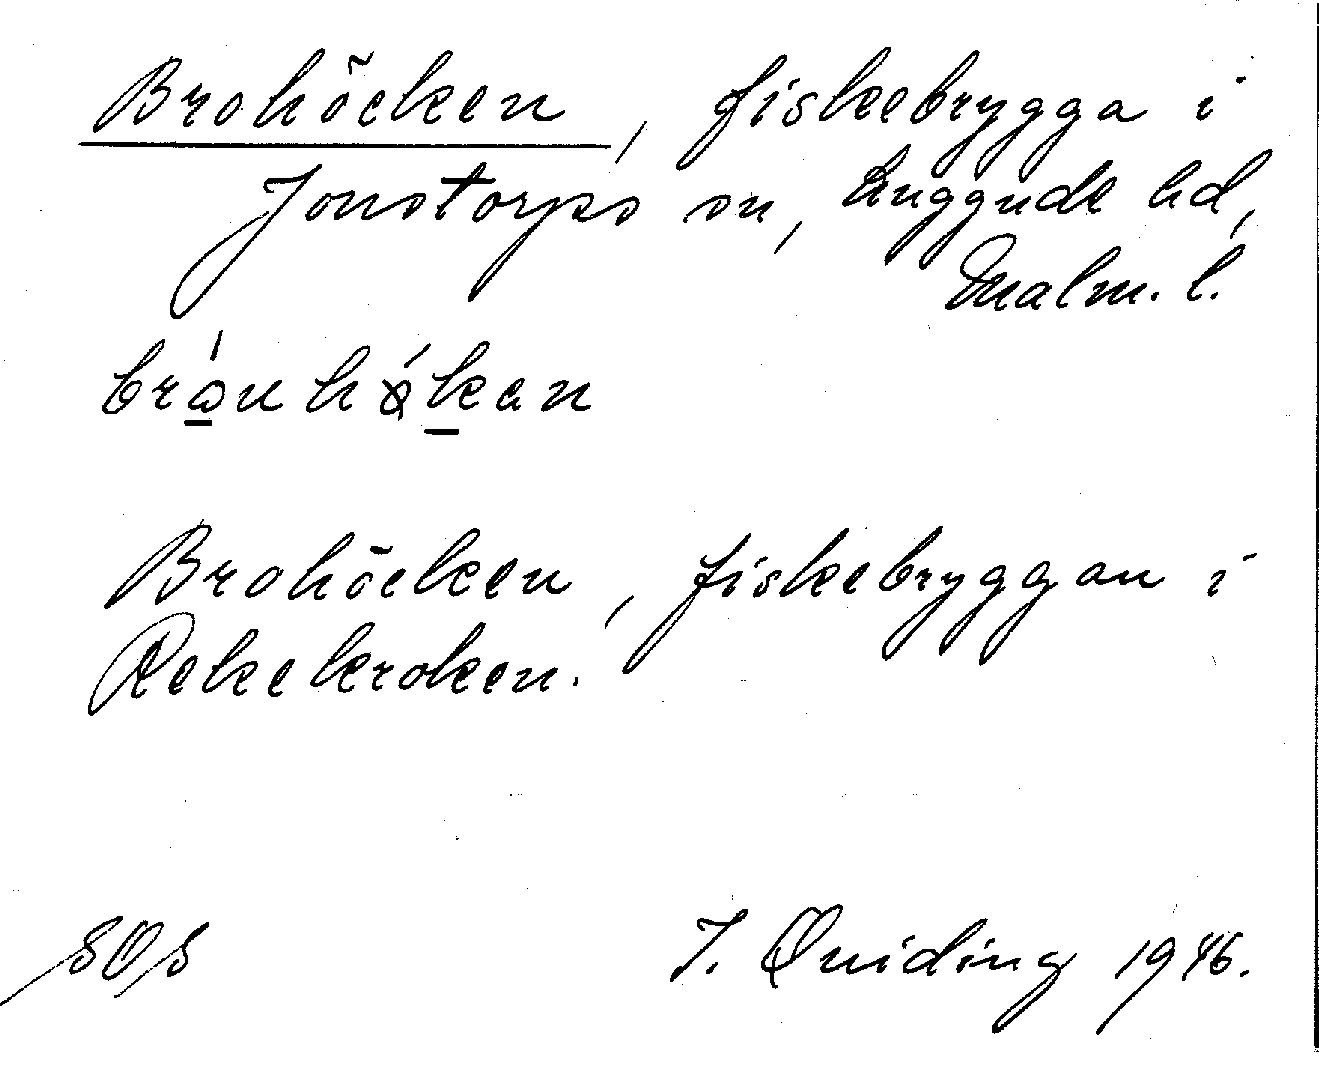 Brohöcken, fiskebrygga i
Jonstorps sn, Luggude hd,
Malm. l.
bróuhǿkan
Brohöcken, fiskebryggan i
Rekekroken.
SOS I. Quiding 1946.